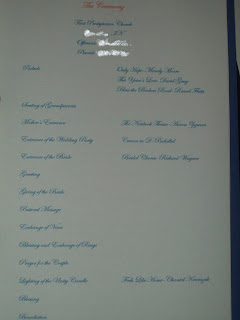 The Ceremony
First Presbyterian Church
Prelude Only Hope - Mandy Moore
The Year's Love - David Gray
Bless the Broken Road - Rascal Flatts
Seating of Grandparents
Mother's Entrance
Entrance of the Wedding Party Canon in D - Pachelbel
Entrance of the Bride Bridal Chorus - Richard Wagner
Greeting
Giving of the Bride
Pastoral Message
Exchange of Vows
Blessing and Exchange of Rings
Prayer for the Couple
Lighting of the Unity Candle Feels Like Home - Chantal Kreviazuk
Blessing
Benediction